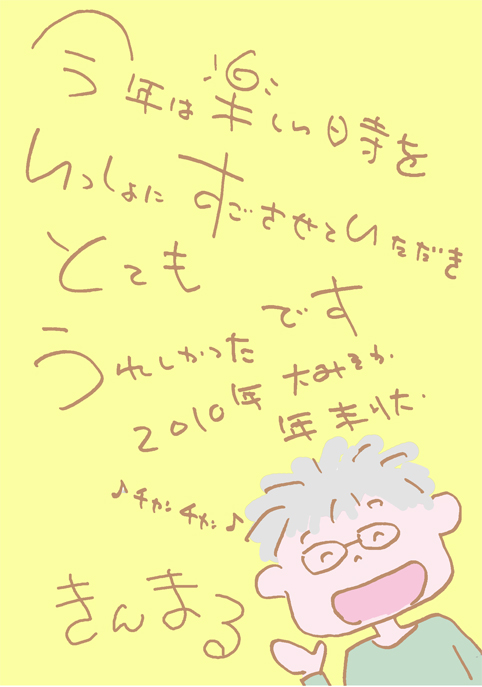 今年は楽しい時を
いっしょにすごさせていただき
とても
うれしかったです
2010年 大みそか.
年末りた.
♪チャカチャカ♪
きんまる